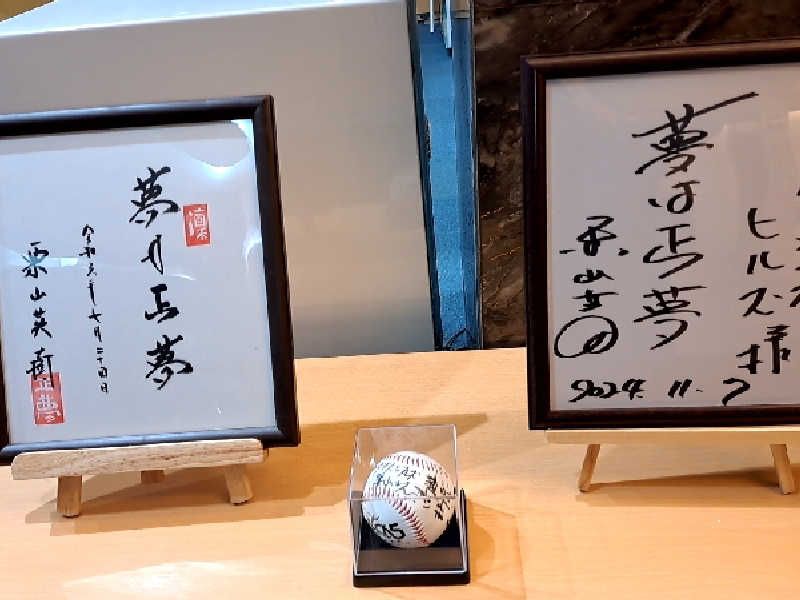 夢は正夢
令和六年七月二十四日
栗山英樹
正夢
ヒルズ様
夢は正夢
栗山英
2024.11.7